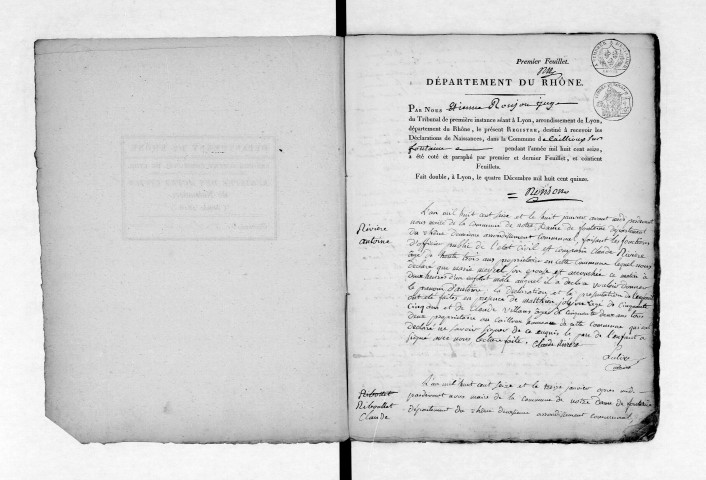 Premier Feuillet.
DÉPARTEMENT DU RHÔNE.
PAR NOUS Etienne Roujon juge
du Tribunal de première instance séant à Lyon, arrondissement de Lyon,
département du Rhône, le présent REGISTRE, destiné à recevoir les
Déclarations de Naissances, dans la Commune de Cailloux sur
fontaine pendant l'année mil huit cent seize,
a été coté et paraphé par premier et dernier Feuillet, et contient
Feuillets.
Fait double, à Lyon, le quatre Décembre mil huit cent quinze.
Rivière
antoine
L'an mil huit cent seize et le huit janvier avant midi pardevant
nous maire de la Commune de notre Dame de fontaine département
du rhône Deuxième arrondissement Communal, faisant les fonctions
d'officier public de l'etat Civil est comparu Claude Rivière
âgé de trente trois ans proprietaire en cette Commune lequel nous a
declaré que marie son epouse est accouchée ce matin à
deux heures d'un enfant male auquel il a déclaré vouloir donner
le prenom d'antoine. la déclaration et la présentation de l'enfant
ont été faites en présence de matthieu agé de Cinquante
Cinq ans et de Claude Villars agé de cinquante deux ans tous
deux proprietaires au cailloux de cette Commune qui ont
declaré ne savoir signer de ce enquis le pere de l'enfant a
signé avec nous lecture faite. Claude Rivière
Ribollet
Ribollet
Claude
L'an mil huit cent seize et le treize janvier après midi
pardevant nous maire de la commune de notre Dame de fontaine
département du rhône deuxieme arrondissement communal,